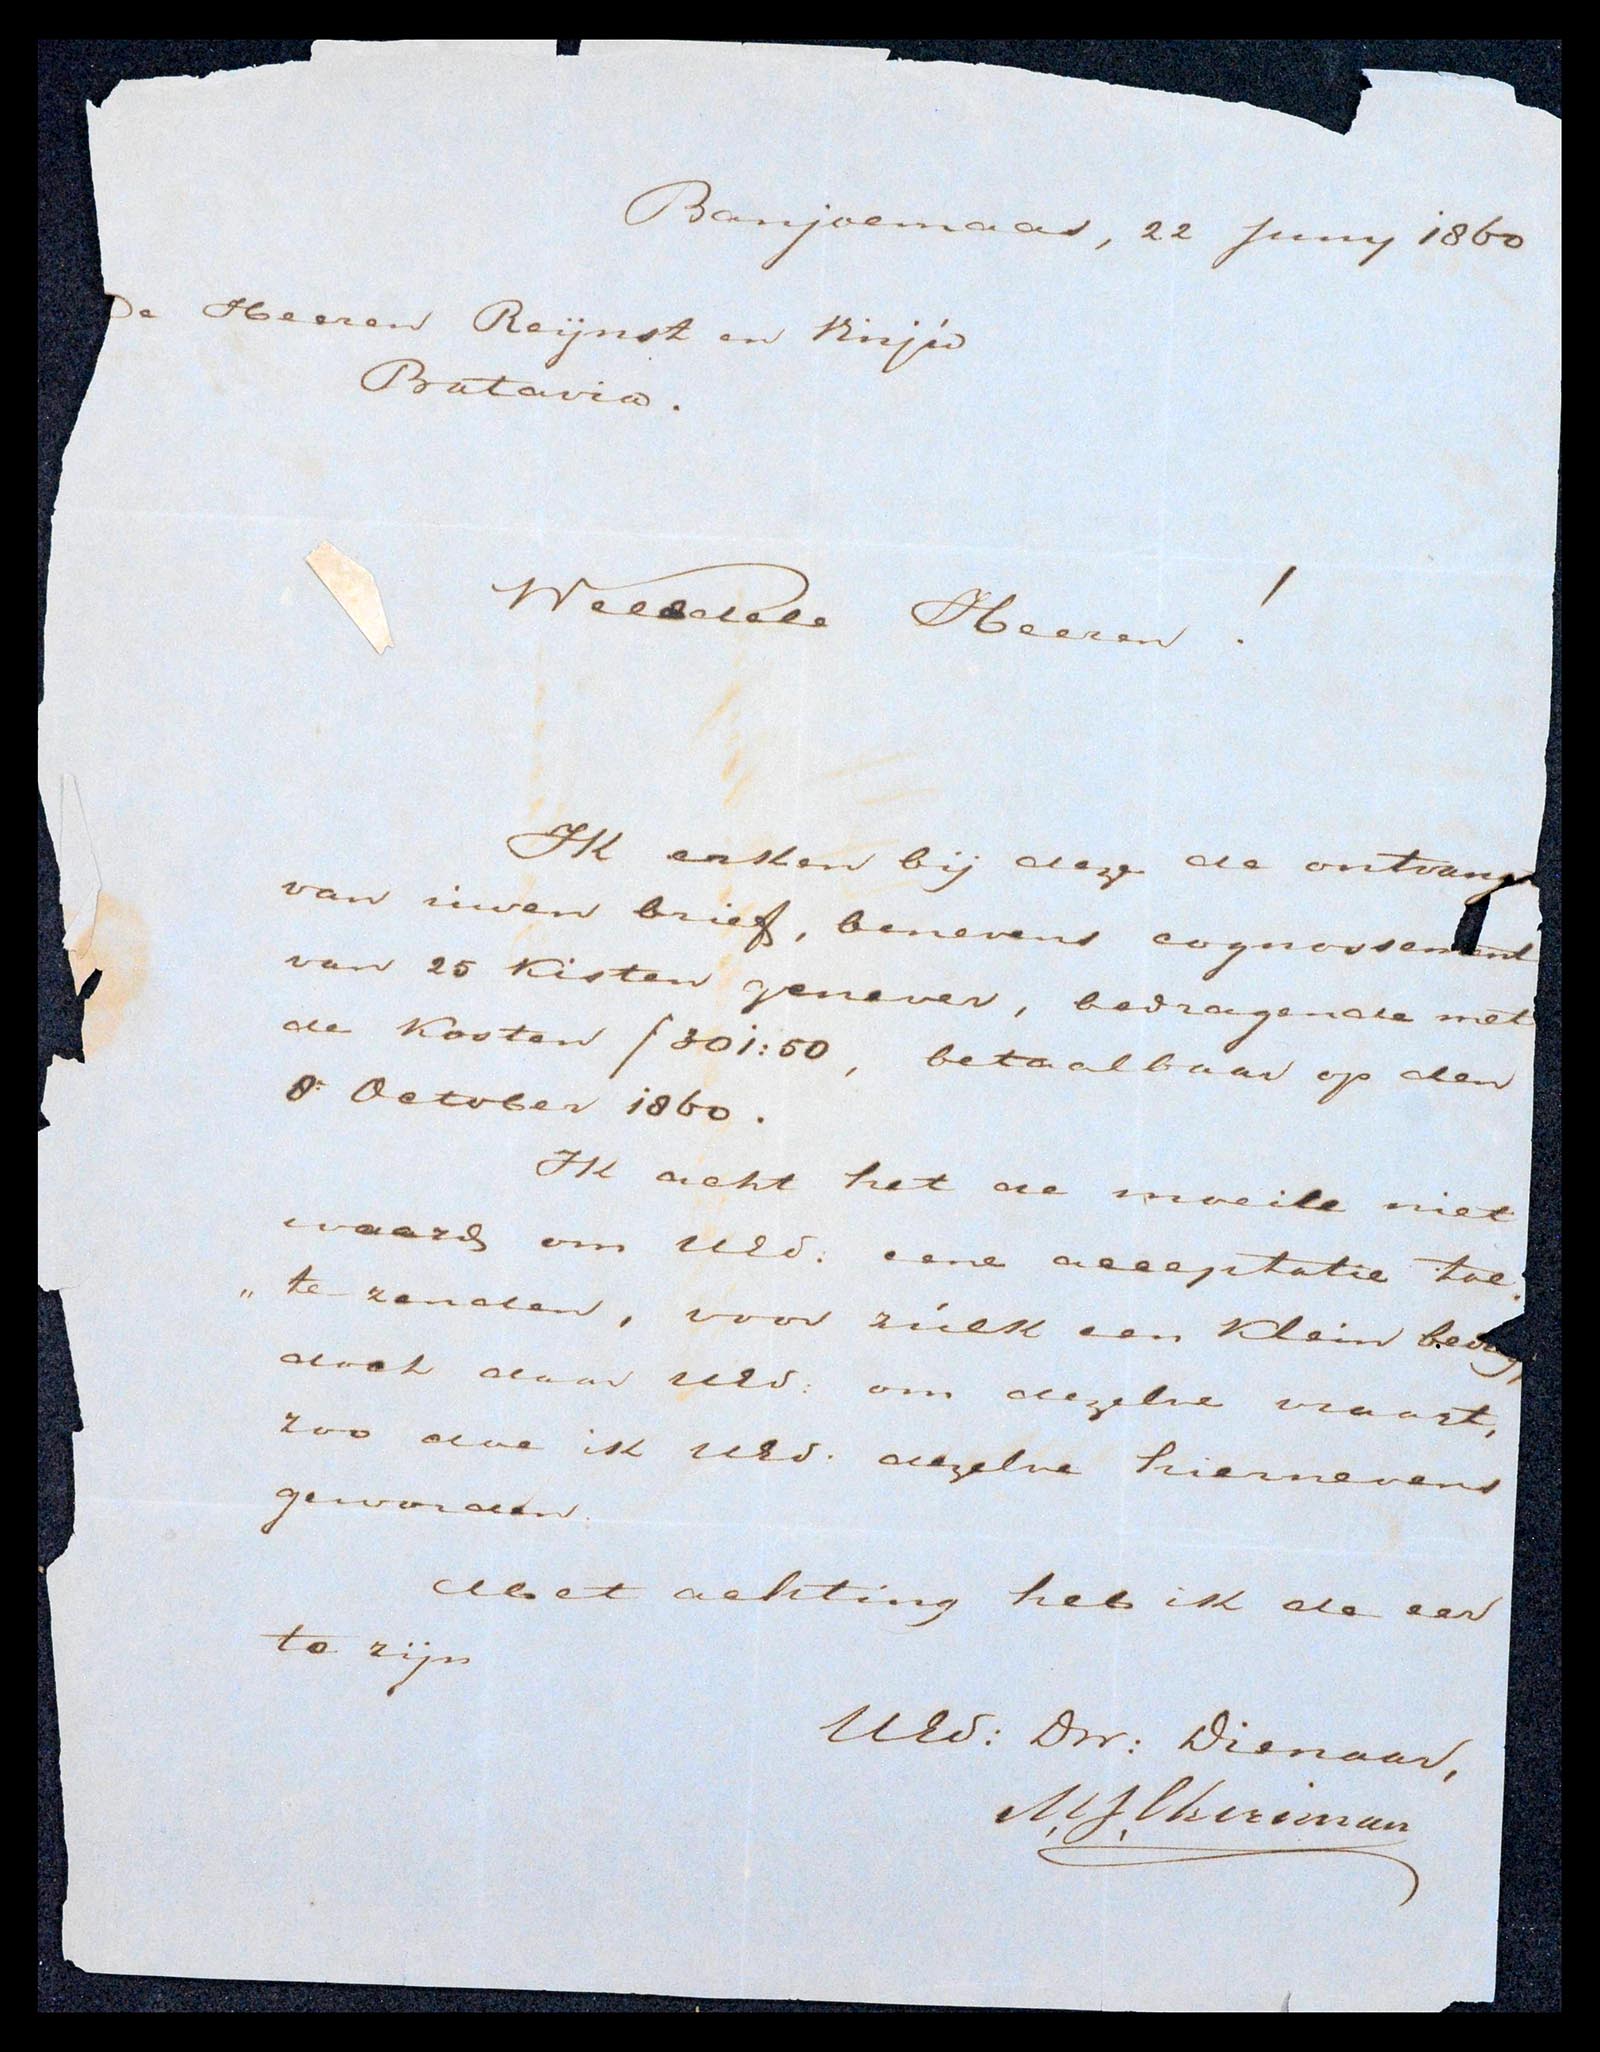 Banjoemaas, 22 Juny 1860
De Heeren Reijnst en Vinju
Batavia.
Weledele Heeren !
Ik erken bij deze de ontvangst
van uwen brief, benevens cognossement
van 25 kisten genever, bedragende met
de kosten f 301:50, betaalbaar op den
8e October 1860.
Ik acht het de moeite niet
waard om UEd: eene acceptatie toe
„ te zenden, voor zúlk een klein bedrag,
doch daar UEd: om dezelve vraagt,
zoo doe ik UEd: dezelve hiernevens
geworden.
Met achting heb ik de eer
te zijn
UEd: Dw: Dienaar,
M. J.